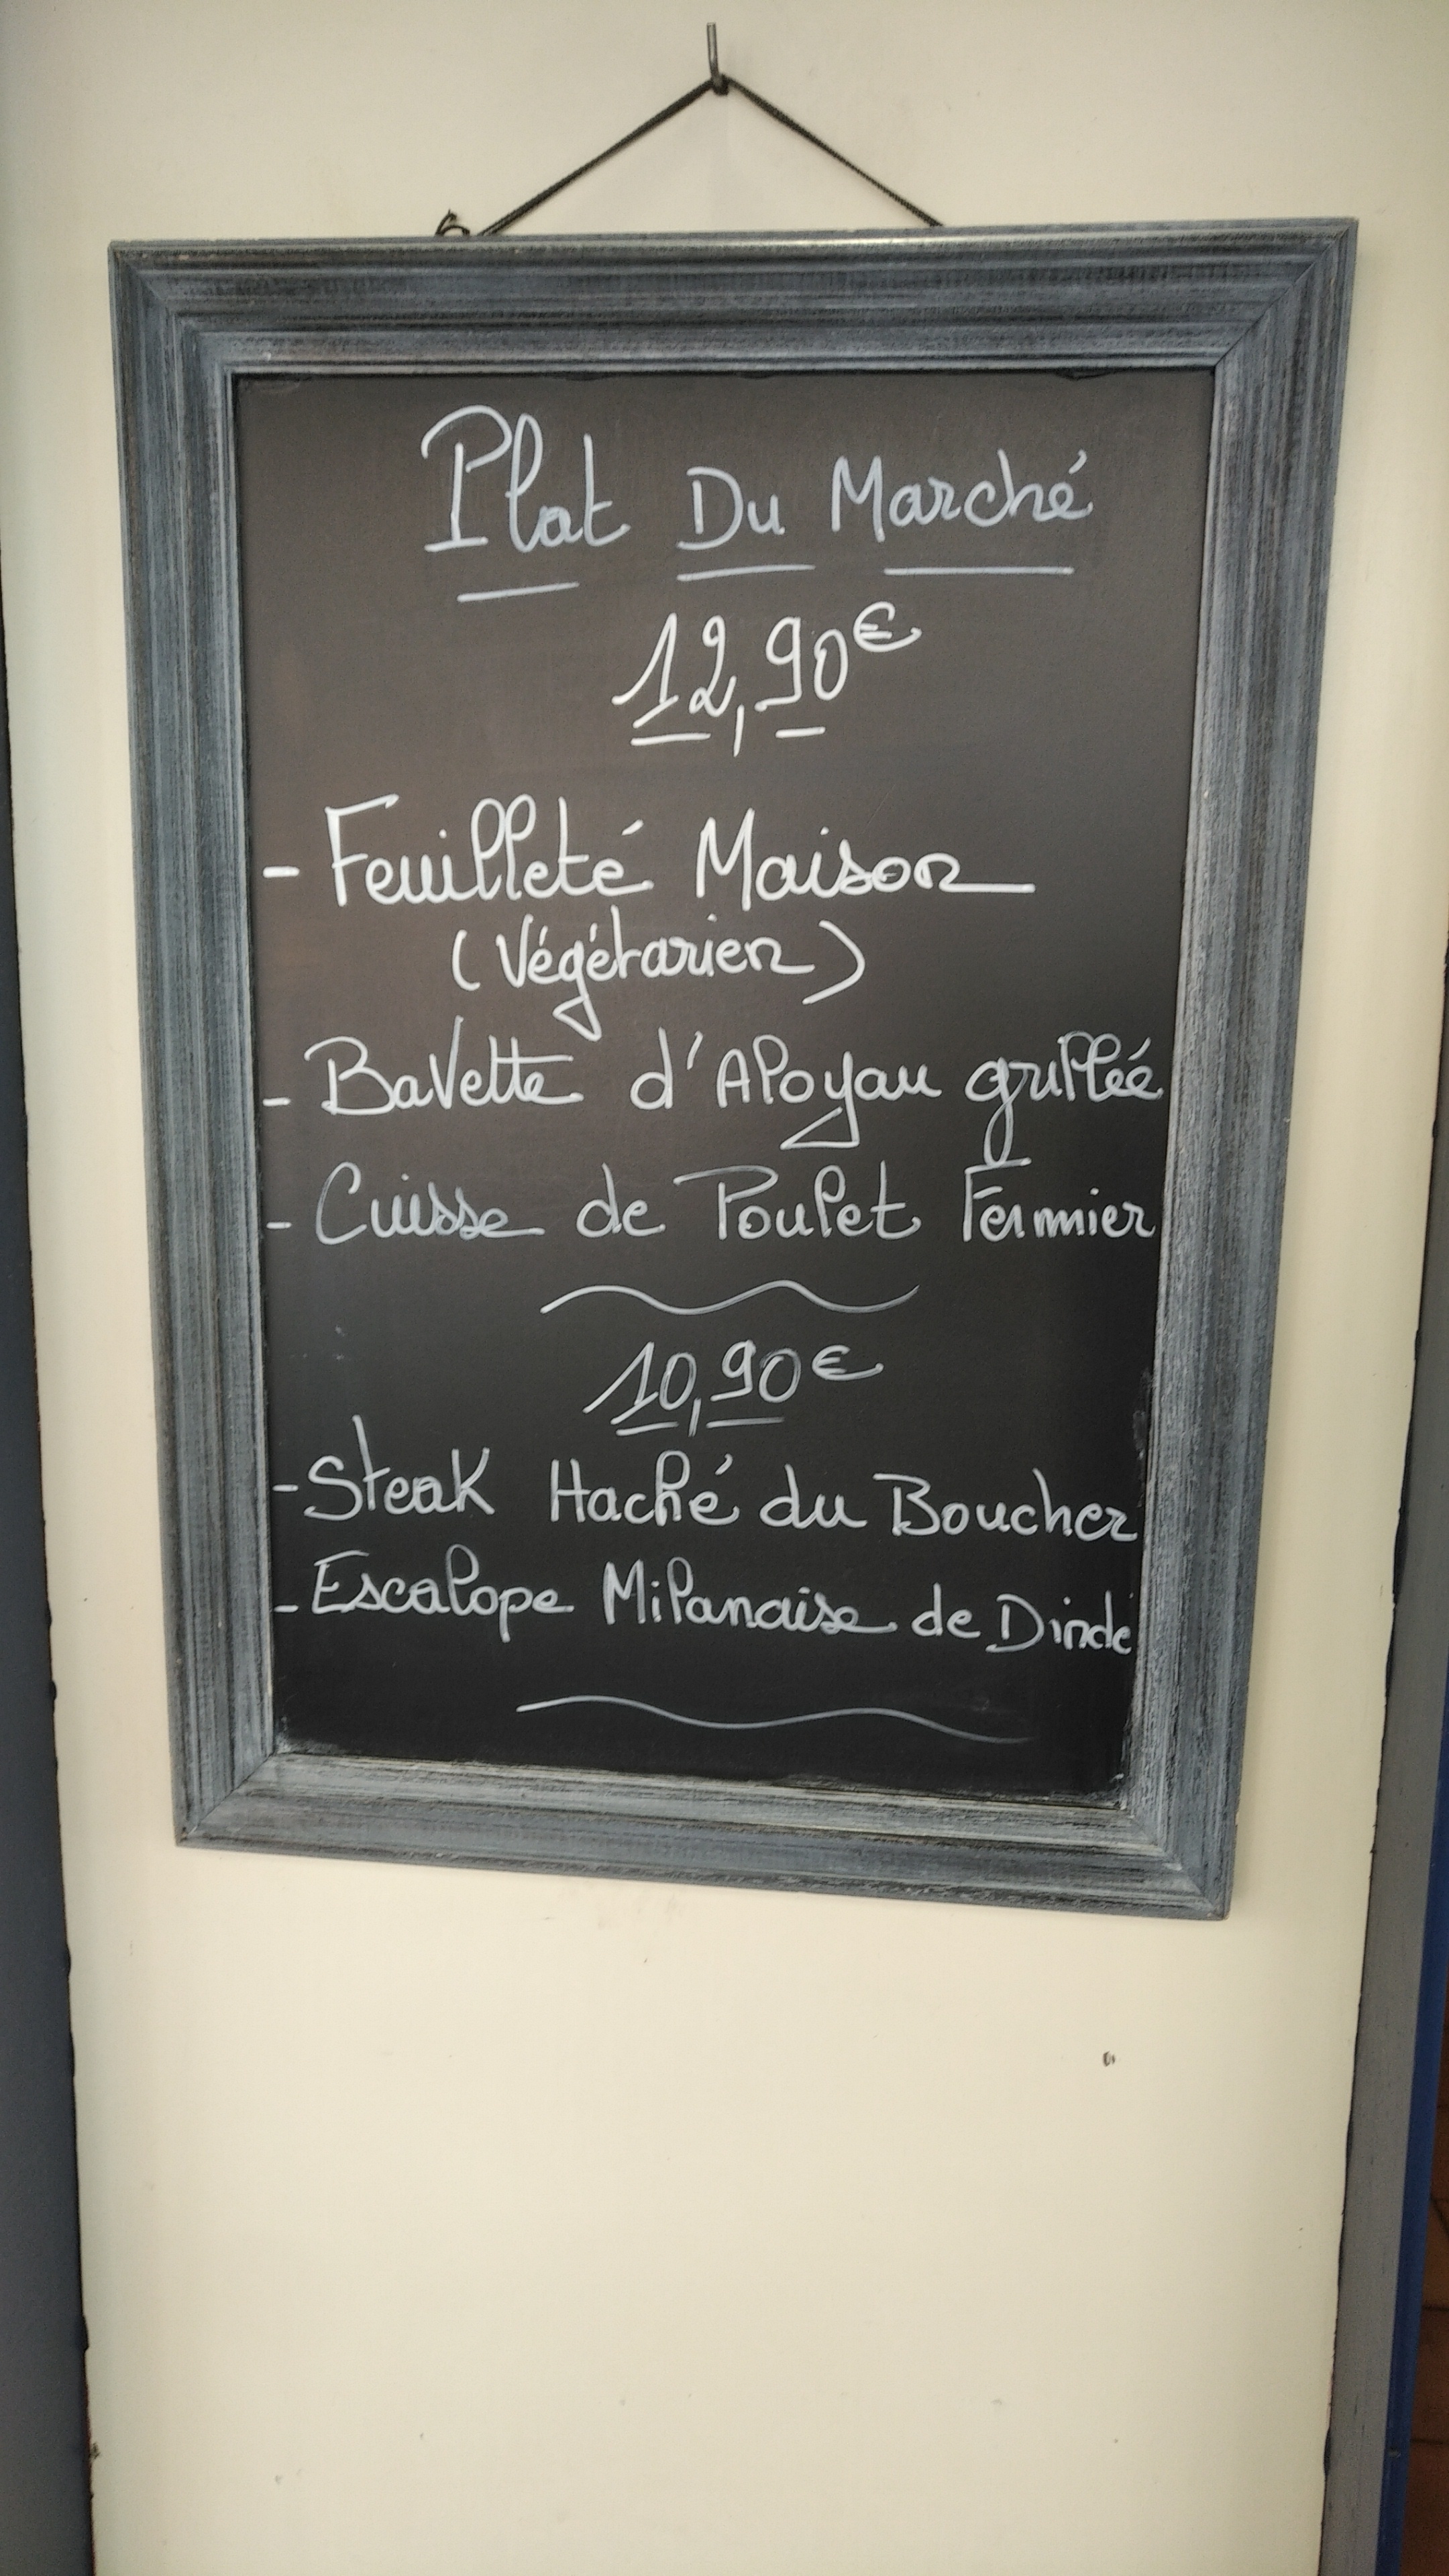 Plat Du Marché
12,90€
- Feuilleté Maison
(Végétarien)
- Bavette d'Aloyau grillée
- Cuisse de Poulet Fermier
10,90€
- Steak Haché du Boucher
- Escalope Milanaise de Dinde